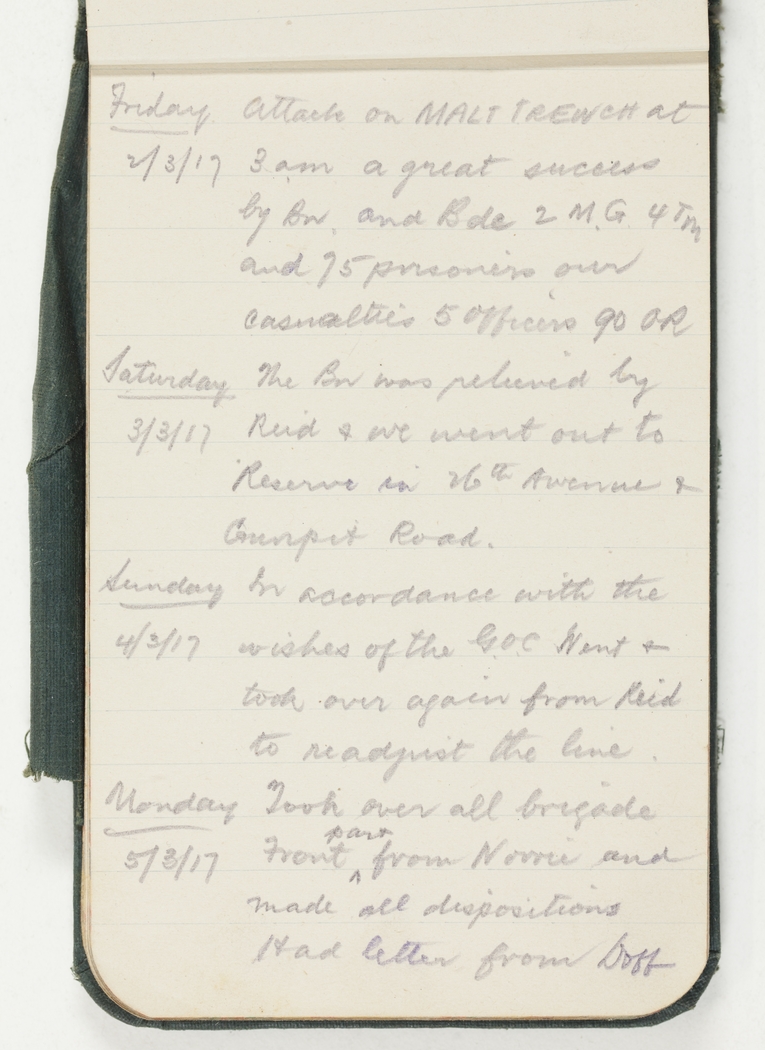 Friday Attack on MALT TRENCH at
2/3/17 3 am a great success
by Bn. and Bde 2 M.G 4 TM
and 75 prisoners our
casualties 5 Officers 90 OR
Saturday The Bn was relieved by
3/3/17 Reid & we went out to
Reserve in 26th Avenue &
Gunpit Road.
Sunday In accordance with the
4/3/17 wishes of the G.O.C Went &
took over again from Reid
to readjust the line.
Monday Took over all brigade
part
5/3/17 Front ^ from Norrie and
made all dispositions
Had letter from Doff